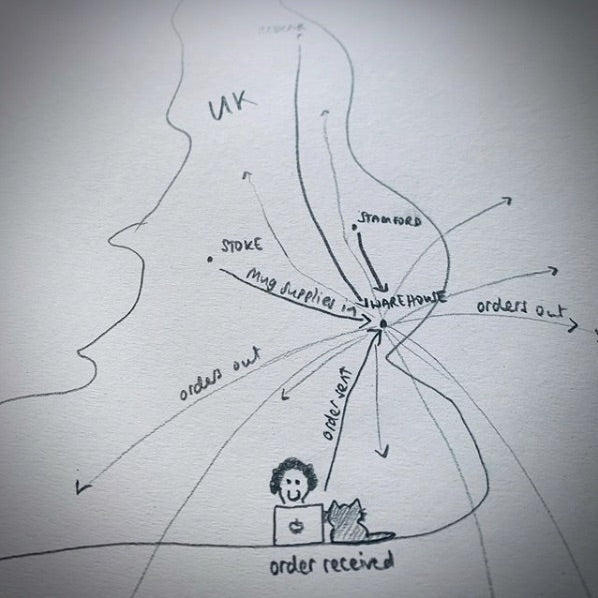 UK
STAMFORD
STOKE
Mug supplies in
WAREHOUSE
orders out
orders out
order sent
order received